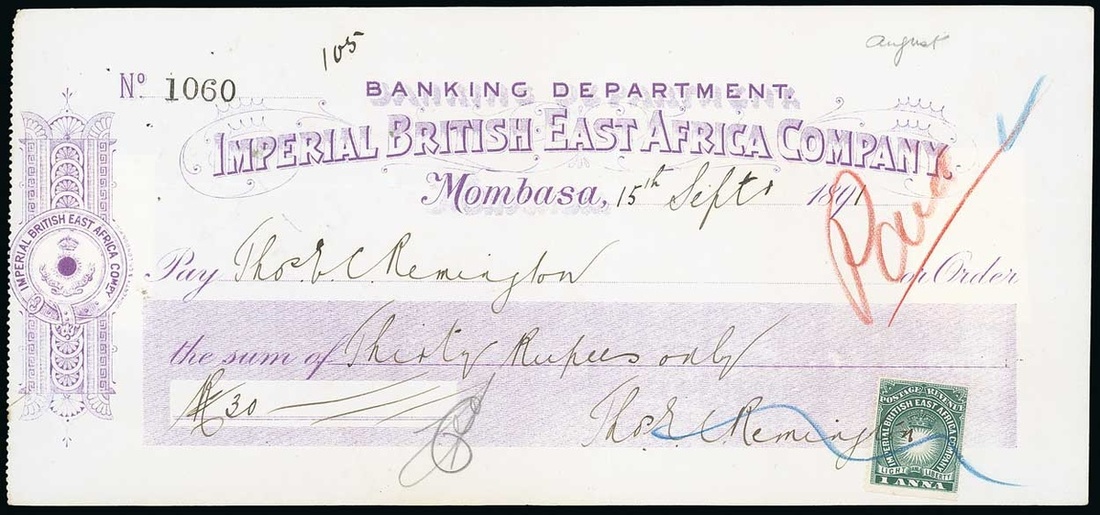 105
August
Nº 1060
BANKING DEPARTMENT.
IMPERIAL BRITISH EAST AFRICA COMPANY.
Mombasa, 15th Sept 1891
IMPERIAL BRITISH EAST AFRICA COMPY
Pay Thos. E. C. Remington or Order
Paid
the sum of Thirty Rupees only
R 30
Thos E C Remington
POSTAGE & REVENUE
IMPERIAL BRITISH EAST AFRICA COMPANY
LIGHT AND LIBERTY
1 ANNA